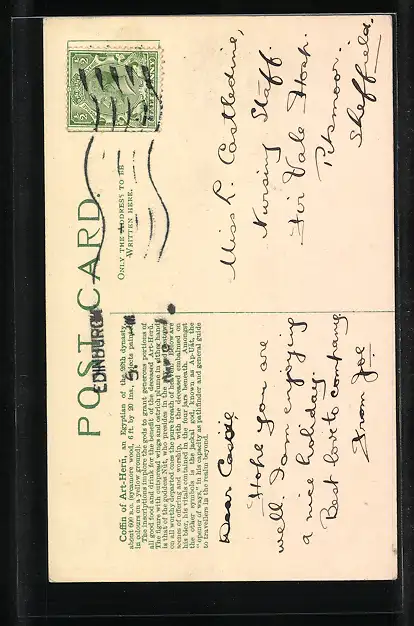 POST CARD.
ONLY THE ADDRESS TO BE
WRITTEN HERE.
EDINBURGH
Coffin of Art-Heru, an Egyptian of the 26th dynasty,
about 600 B.C. (sycamore wood, 6 ft. by 20 ins., subjects painted
in colours on a yellow ground).
The inscriptions implore the gods to grant generous portions of
all good food and drink for the benefit of the deceased Art-Heru.
The figure with outspread wings and ostrich plume in either hand
is that of the goddess Nût, who presides in the
on all worthy departed ones the pure breath of heaven. Below are
scenes of offering and worship, with the deceased embalmed on
his bier, his vitals contained in the four jars beneath. Amongst
the other symbols is the jackal god, known as Ap-Uat, the
"opener of ways," in his capacity as pathfinder and general guide
to travellers in the realm beyond.
Dear Cassie
Hope you are
well I am enjoying
a nice holiday
Best love to
from Joe
Miss L. Castledine,
Nursing Staff.
Fir Vale Hosp.
Pitsmoor.
Sheffield.